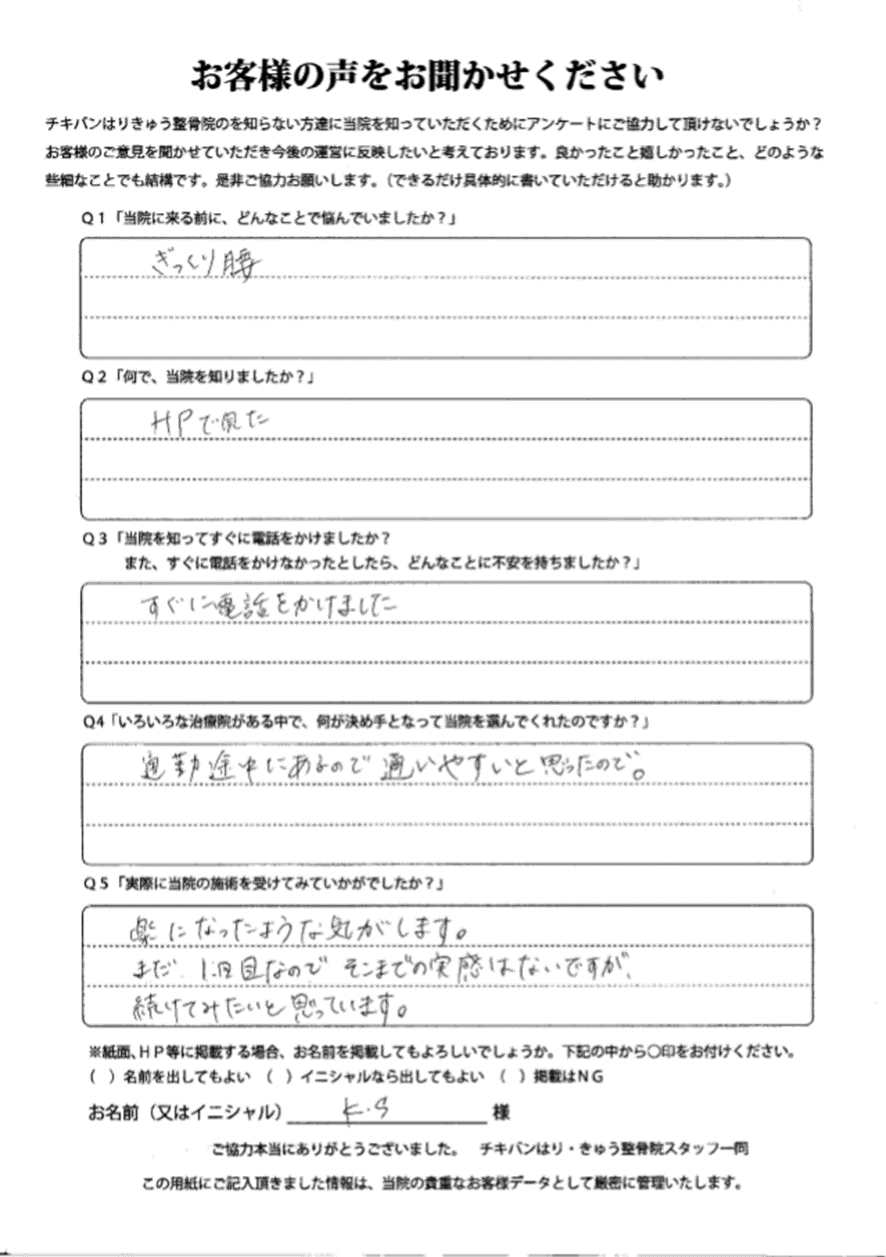 お客様の声をお聞かせください
チキバンはりきゅう整骨院のを知らない方達に当院を知っていただくためにアンケートにご協力して頂けないでしょうか？
お客様のご意見を聞かせていただき今後の運営に反映したいと考えております。良かったこと嬉しかったこと、どのような
些細なことでも結構です。是非ご協力お願いします。（できるだけ具体的に書いていただけると助かります。）
Ｑ１「当院に来る前に、どんなことで悩んでいましたか？」
ぎっくり腰
Ｑ２「何で、当院を知りましたか？」
HPで見た
Ｑ３「当院を知ってすぐに電話をかけましたか？
また、すぐに電話をかけなかったとしたら、どんなことに不安を持ちましたか？」
すぐに電話をかけました
Ｑ4「いろいろな治療院がある中で、何が決め手となって当院を選んでくれたのですか？」
通勤途中にあるので通いやすいと思ったので。
Ｑ５「実際に当院の施術を受けてみていかがでしたか？」
楽になったような気がします。
まだ1回目なのでそこまでの実感はないですが、
続けてみたいと思っています。
※紙面、ＨＰ等に掲載する場合、お名前を掲載してもよろしいでしょうか。下記の中から〇印をお付けください。
（　）名前を出してもよい　（　）イニシャルなら出してもよい　（　）掲載はＮＧ
お名前（又はイニシャル）K.S様
ご協力本当にありがとうございました。　チキバンはり・きゅう整骨院スタッフ一同
この用紙にご記入頂きました情報は、当院の貴重なお客様データとして厳密に管理いたします。